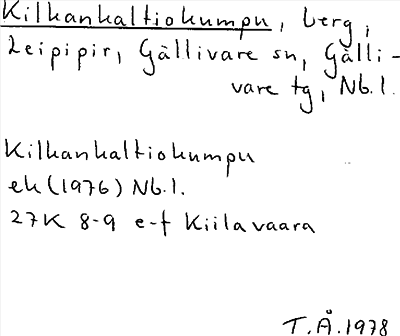 Kilkankaltiokumpu, berg,
Leipipir, Gällivare sn, Gälli-
vare tg, Nb.l.
Kilkankaltiokumpu
ek (1976) Nb.l.
27K 8-9 e-f Kiilavaara
T.Å.1978